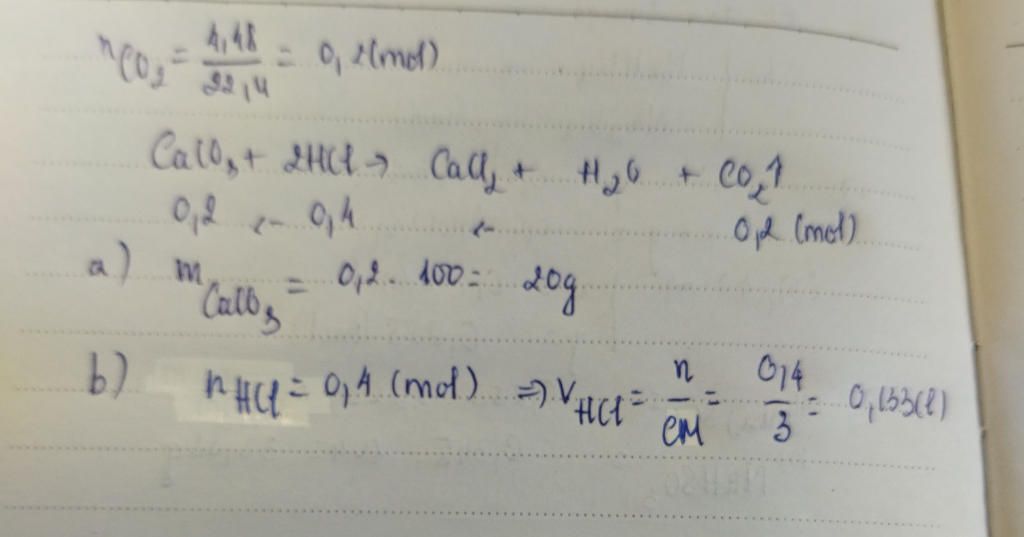 nCO₂ = 4,48/22,4 = 0,2 (mol)
CaCO₃ + 2HCl → CaCl₂ + H₂O + CO₂↑
0,2 ← 0,4 ← 0,2 (mol)
a) mCaCO₃ = 0,2 . 100 = 20g
b) nHCl = 0,4 (mol) ⇒ VHCl = n/CM = 0,4/3 = 0,133(l)